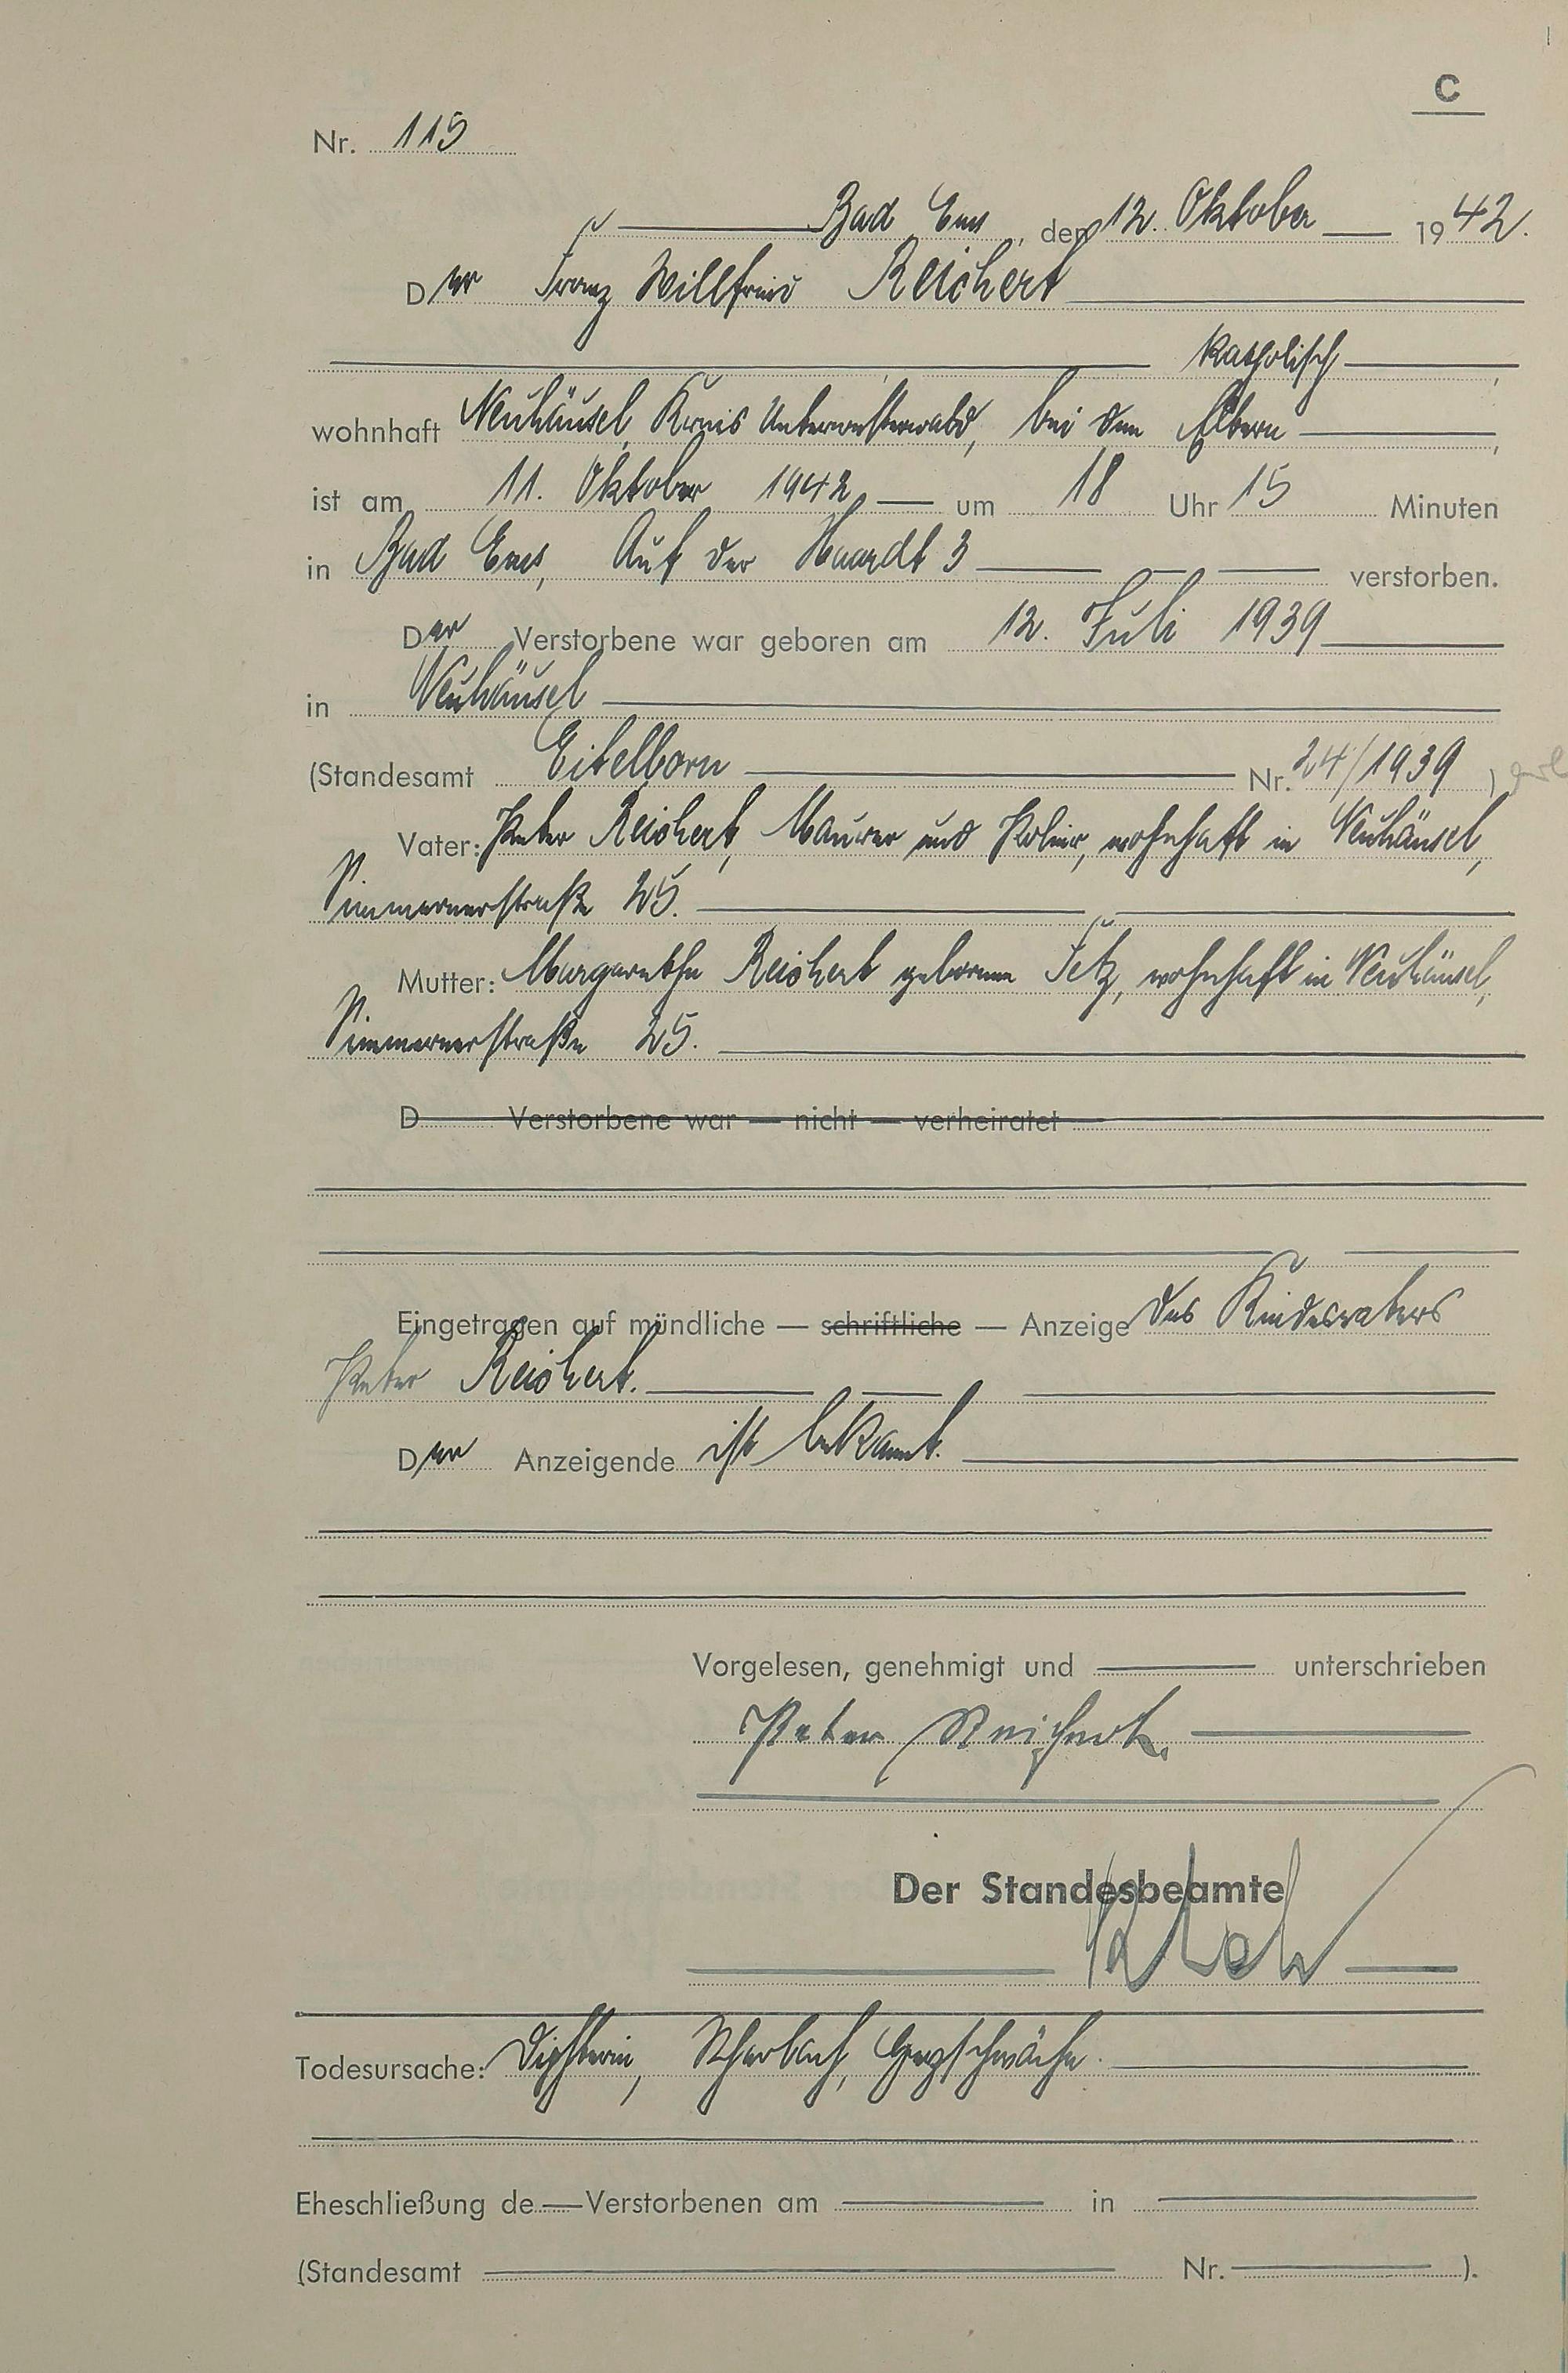 C
Nr. 115
Bad Ems, den 12. Oktober 1942.
Der Franz Willfried Reichert
katholisch
wohnhaft Neuhäusel, Kreis Unterwesterwald, bei den Eltern
ist am 11. Oktober 1942 um 18 Uhr 15 Minuten
in Bad Ems, Auf der Haardt 3 verstorben.
Der Verstorbene war geboren am 12. Juli 1939
in Neuhäusel
(Standesamt Eitelborn Nr. 24/1939)
Vater: Peter Reichert, Maurer und Polier, wohnhaft in Neuhäusel,
Simmernerstraße 25.
Mutter: Margarethe Reichert geborene Setz, wohnhaft in Neuhäusel,
Simmernerstraße 25.
D Verstorbene war — nicht — verheiratet
Eingetragen auf mündliche — schriftliche — Anzeige des Kindesvaters
Peter Reichert.
Der Anzeigende ist bekannt.
Vorgelesen, genehmigt und unterschrieben
Peter Reichert.
Der Standesbeamte
Todesursache: Diphterie, Herzschwäche.
Eheschließung de Verstorbenen am in
(Standesamt Nr. ).